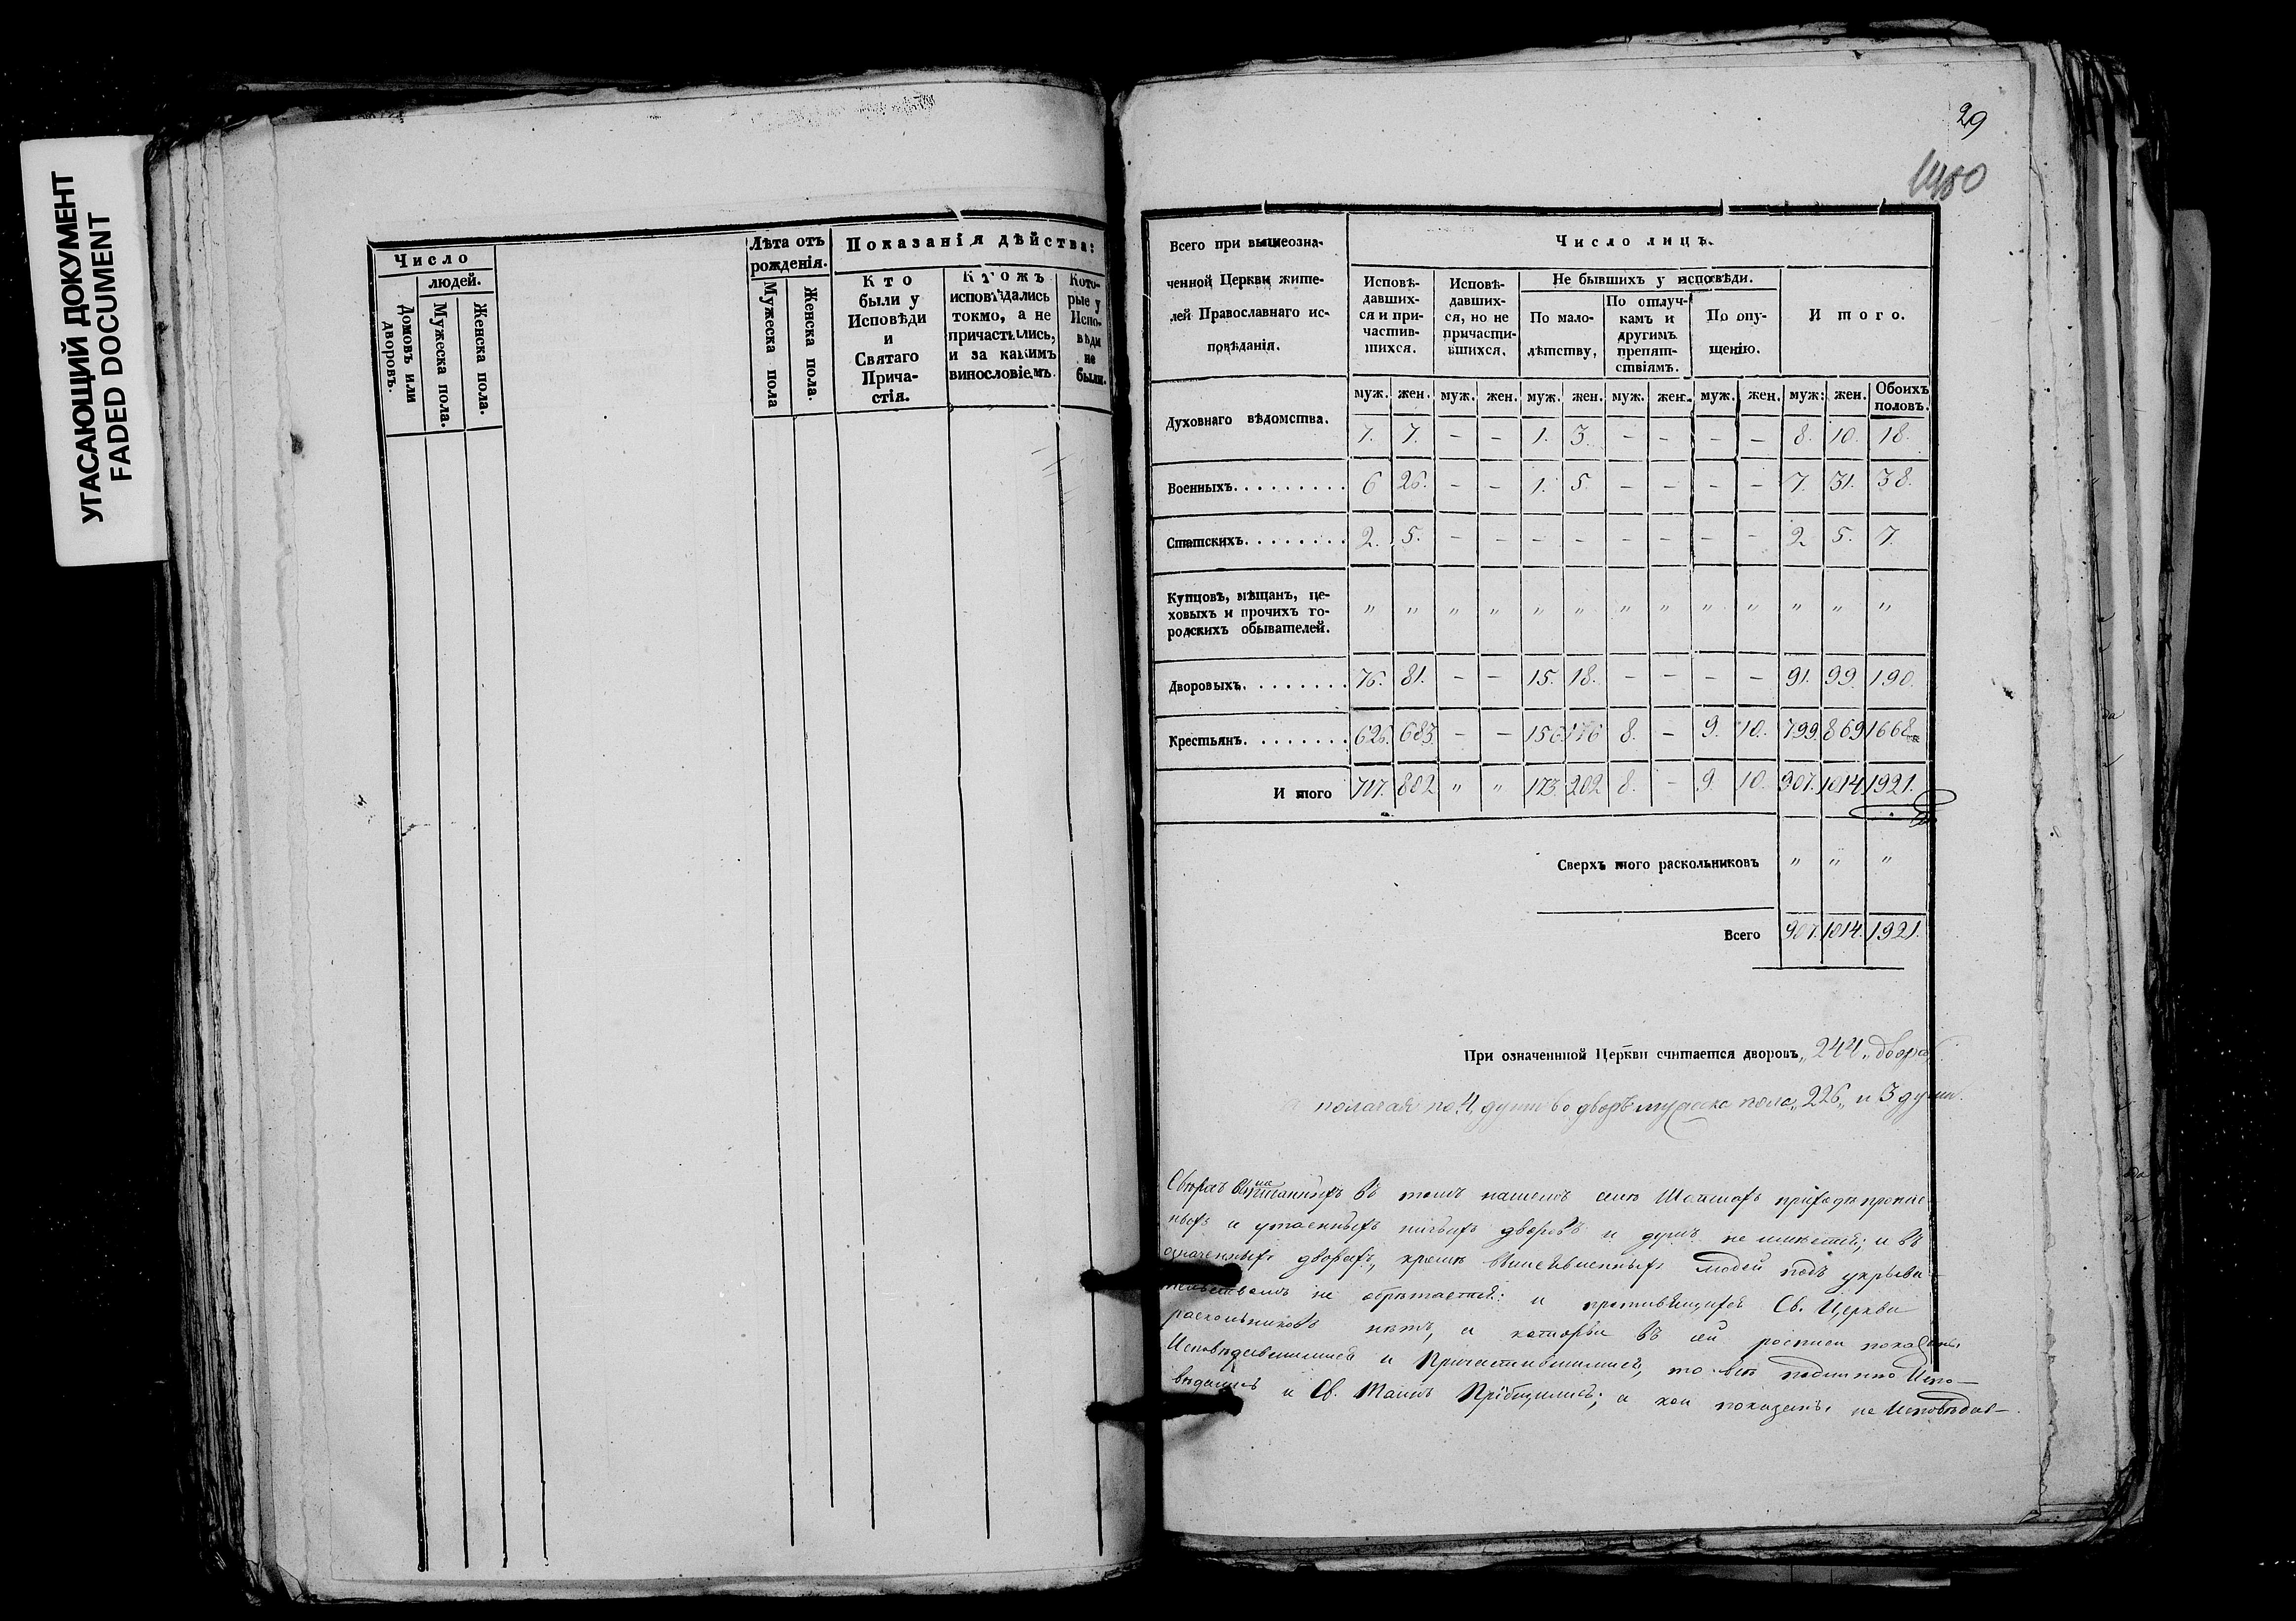 УГАСАЮЩИЙ ДОКУМЕНТ
FADED DOCUMENT
Число
людей.
Домовъ или дворовъ.
Мужеска пола.
Женска пола.
Лѣта отъ
рожденія.
Мужеска пола
Женска пола.
Показанія дѣйства:
Кто
были у
Исповѣди
и
Святаго
Прича-
стія.
Ктожъ
исповѣдались
токмо, а не
причастились,
и за какимъ
винословіемъ
Кото-
рые у
Испо-
вѣди
не
были.
29
Всего при вышеозна-
ченной Церкви жите-
лей Православнаго ис-
повѣданія.
Число лицъ.
Исповѣ-
давших-
ся и при-
частив-
шихся.
Исповѣ-
давших-
ся, но не
причасти-
вшихся.
Не бывшихъ у исповѣди.
По мало-
лѣтству,
По отлуч-
камъ и
другимъ
препят-
ствіямъ.
По опу-
щенію.
И того.
муж. жен. муж. жен. муж. жен. муж. жен. муж. жен. муж: жен. Обоихъ половъ.
Духовнаго вѣдомства. 7. 7. – – 1. 3. – – – – 8. 10. 18.
Военныхъ. 6 26. – – 1. 5. – – – – 7. 31. 38.
Статскихъ. 2. 5. – – – – – – – – 2 5. 7.
Купцовъ, мѣщанъ, це-
ховыхъ и прочихъ го-
родскихъ обывателей.
" " " " " " " " " " " " "
Дворовыхъ. 76. 81. – – 15. 18. – – – – 91. 99. 190.
Крестьянъ. 626. 683. – – 156 176 8. – 9. 10. 799. 869 1668
И того 717. 802 " " 173. 202 8. – 9. 10. 907. 1014 1921.
Сверхъ того раскольниковъ " " "
Всего 907. 1014. 1921.
При означенной Церкви считается дворовъ „244„ двора
а полагая по 4 души во дворѣ мужеска пола „226„ и 3 души.
Сверхъ въ томъ нашемъ приходѣ
и утаенныхъ дворовъ и душъ не имѣется; и въ
означенныхъ дворахъ, кромѣ людей подъ укрыва-
тельствомъ не обрѣтается: и противящихся Св. Церкви
раскольниковъ нѣтъ, а которые въ сей росписи показаны
Исповѣдавшимися и Причастившимися, то всѣ подлинно Испо-
вѣдались и Св. Таинъ Пріобщились; а кои показаны не Исповѣдав-